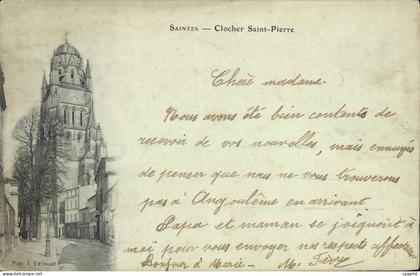 SAINTES — Clocher Saint-Pierre
Chère madame.
Nous avons été bien contents de
recevoir de vos nouvelles, mais ennuyés
de penser que nous ne vous trouverons
pas à Angoulême en arrivant
Papa et maman se joignent à
moi pour vous envoyer nos respects affectueux
Bonjour à Marie — M.
Pap. J. Prévost